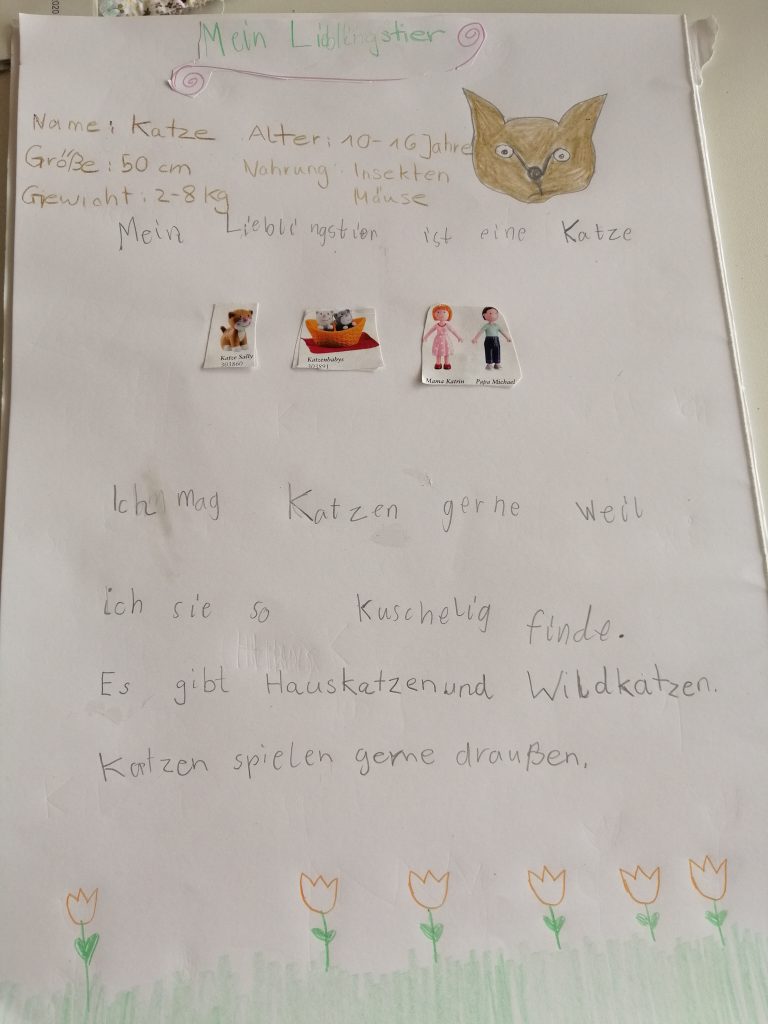 Mein Lieblingstier
Name: Katze Alter: 10-16 Jahre
Größe: 50 cm Nahrung: Insekten
Gewicht: 2-8 kg Mäuse
Mein Lieblingstier ist eine Katze
Katze Sally
303860
Katzenbabys
302891
Mama Katrin Papa Michael
Ich mag Katzen gerne weil
ich sie so kuschelig finde.
Es gibt Hauskatzen und Wildkatzen.
Katzen spielen gerne draußen.